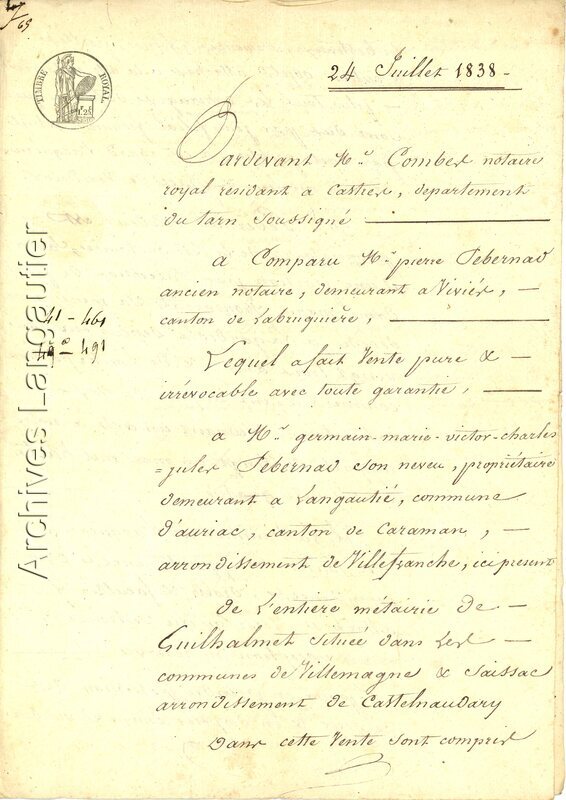 65
TIMBRE ROYAL
24 Juillet 1838 -
Pardevant Mr. Combes notaire
royal residant a Castres, departement
du tarn soussigné
a Comparu Mr. pierre Pebernad
ancien notaire, demeurant a Viviés, -
canton de Labruguière,
Lequel a fait Vente pure & -
irrévocable avec toute garantie,
a Mr. germain-marie-victor-charles
=jules Pebernad son neveu, propriétaire
demeurant a Langautié, commune
d'auriac, canton de Caraman, -
arrondissement de Villefranche, ici présent
de L'entière métairie de -
Guilhalmet située dans Les -
communes de Villemagne & Saissac
arrondissement de Castelnaudary
Dans cette Vente sont compris
41 - 461
491
Archives Langautier